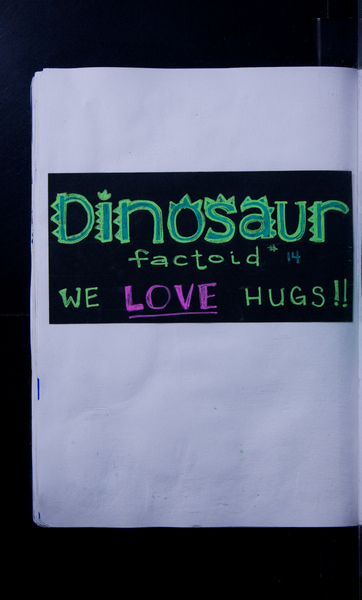 Dinosaur
factoid #14
WE LOVE HUGS!!